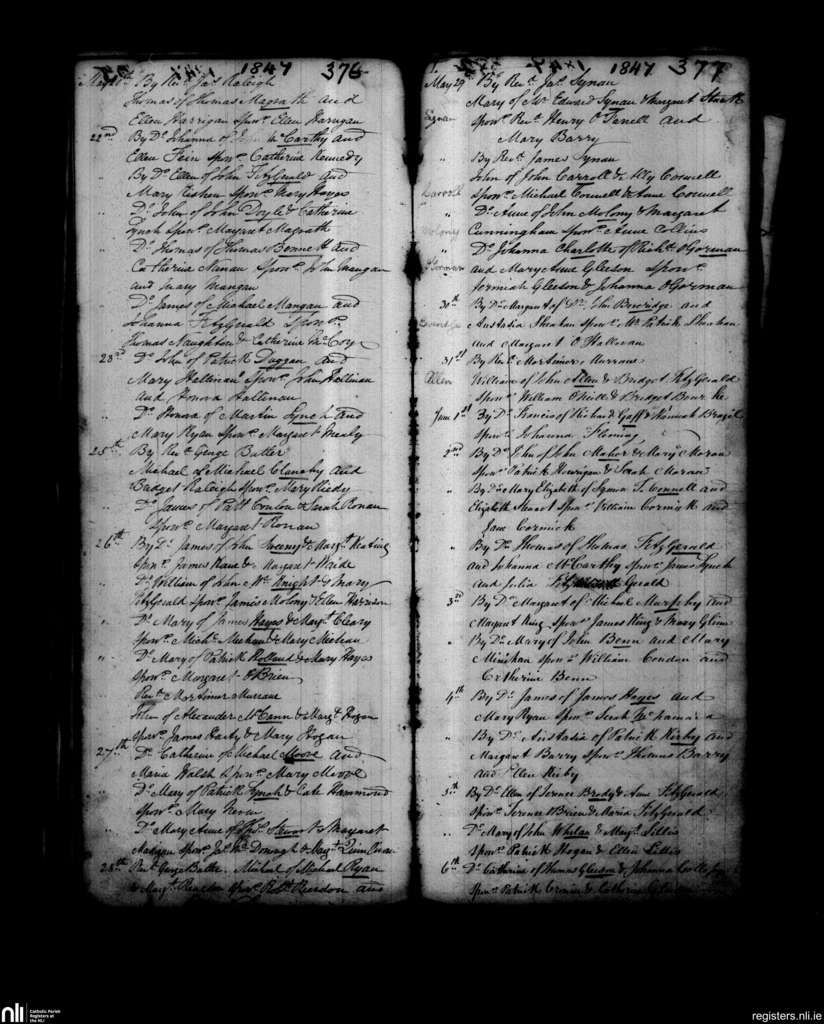 1847 376
By Revd Jas Raleigh
Thomas of Thomas Magrath and
Ellen Harrigan Sponr Ellen Harrigan
22nd By Do Johanna of McCarthy and
Ellen Fein Sponr Catherine Kennedy
" By Do Ellen of John FitzGerald and
Mary Sponr Mary Hayes
" Do John of John Doyle & Catherine
Lynch Sponr Margaret Magrath
" Do Thomas of Thomas Bennett and
Catherine Sponr John Mangan
and Mary Mangan
" Do James of Michael Mangan and
Johanna FitzGerald Sponr
Thomas Naughton & Catherine McCoy
23rd Do John of Patrick Duggan and
Mary Hallinan Sponr John Hallinan
and Honora Hallinan
" Do Honora of Martin Lynch and
Mary Ryan Sponr Margaret Mealy
25th By Revd George Butler
Michael of Michael Clanchy and
Bridget Raleigh Sponr Mary
" Do James of Patt Conlon & Sarah Ronan
Sponr Margaret Ronan
26th By Do James of John Sweeny & Margt Keating
Sponr James & Margaret
" Do William of John McKnight & Mary
FitzGerald Sponr James Molony & Ellen Harrison
" Do Mary of James Hayes & Margt Cleary
Sponr Michl Meehan & Mary Meehan
" Do Mary of Patrick Holland & Mary Hayes
Sponr Margaret O'Brien
Revd Mortimer
John of Alexander McCann & Margt Hogan
Sponr James & Mary Hogan
27th Do Catherine of Michael Moore and
Maria Walsh Sponr Mary Moore
" Do Mary of Patrick Lynch & Cate Hammond
Sponr Mary
" Do Mary Anne of Thos Stewart & Margaret
Sponr Jas McDonagh & Margt
28th Revd George Butler. Michael of Michael Ryan
& Margt Reardon Sponr Robt Reardon and
1847 377
May 29 By Revd Jas Synan
Mary of Mr Edward Synan & Margaret
Synan Sponr Revd Henry O and
Mary Barry
" By Revd James Synan
John of John Carroll & Conwell
Carroll Sponr Michael & Anne Conwell
" Do Anne of John Molony & Margaret
Molony Cunningham Sponr Anne Collins
" Do Johanna Charlotte of Richd O'Gorman
O'Gorman and Mary Anne Gleeson Sponr
Jeremiah Gleeson & Johanna O'Gorman
30th By Do Margaret of Mr John Beveridge and
Beveridge Anastatia Sheahan Sponr Mr Patrick Sheahan
and Margaret O'Halloran
31st By Revd Mortimer
Allen William of John Allen & Bridget FitzGerald
Sponr William O'Neill & Bridget Bourke
June 1st By Do Francis of Richard Goff & Hannah
Sponr Johanna Fleming
2nd By Do John of John Maher & Mary Moran
Sponr Patrick Horrigan & Sarah Moran
" By Do Mary Elizabeth of Connell and
Elizabeth Stewart Sponr William Cormick and
Jane Cormick
" By Do Thomas of Thomas FitzGerald
and Johanna McCarthy Sponr James Lynch
and Julia FitzGerald
3rd By Do Margaret of Michael Murphy and
Margaret King Sponr James King & Mary
" By Do Mary of John Benn and Mary
Minihan Sponr William Condon and
Catherine Benn
4th By Do James of James Hayes and
Mary Ryan Sponr Sarah McNamara
" By Do Anastatia of Patrick Kirby and
Margaret Barry Sponr Thomas Barry
and Ellen Kirby
5th By Do Ellen of Terence Brody & Anne FitzGerald
Sponr Terence O'Brien & Maria FitzGerald
" Do Mary of John Whelan & Margt Lillis
Sponr Patrick Hogan & Ellen Lillis
6th Do Catherine of Thomas Gleeson & Johanna
Sponr Patrick & Catherine
nli
Catholic Parish
Registers at
the NLI
registers.nli.ie